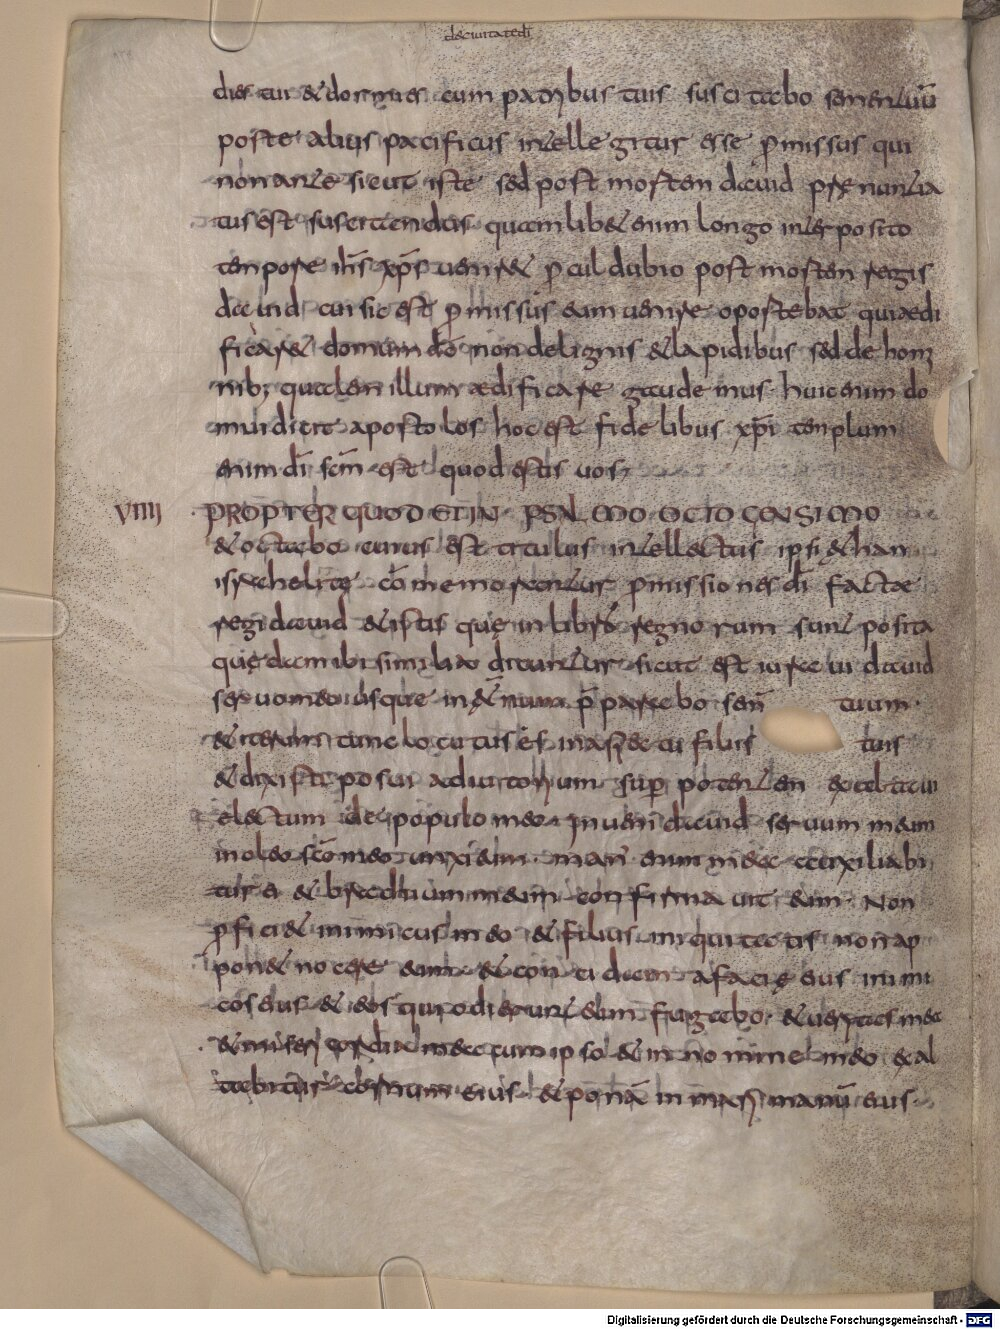 de civitate di
dies tui & dormies cum patribus tuis suscitabo semen tuū
poste alius pacificus intellegitur esse promissus qui
non ante sicut iste sed post mortem david prænuntia
tus est suscitandus quamlib& enim longo interposito
tempore ihs xps venir& procul dubio post mortem regis
david cui sic est promissus eum venire oportebat qui ædi
ficar& domum dō non de lignis & lapidibus sed de homi
nib; qualem illum ædificare gaudemus huic enim do
mui dicit apostolos hoc est fidelibus xp̄i templum
enim dī scm est quod estis vos;
VIIII PROPTER QUOD ET IN PSALMO OCTOGENSIMO
& octabo cuius est titulus intellectus ipsi ethan
isrrahelite cōmemorantur promissiones dī factae
regi david & istis quę in libro regnorum sunt posita
quędam ibi similia dicuntur sicut est iuravi david
servo meo usque in &ernum p̄parabo sem̄ tuum
& iterum tunc locutus es in aspectu filiis tuis
& dixisti posui adiutorium super potentem exaltavi
electum de populo meo Inveni david servum meum
in oleo scō meo unxi eum manˢ enim mea auxiliabi
tur ei & bracchium meum confirmavit eum Non
profici& inimicus in eo & filius iniquitatis non ap
pon& nocere eum & concidam a facie eius inimi
cos eius & eos qui oderunt eum fugabo & veritas mea
& misericordia mea cum ipso & in nomine meo exal
tabitur cornum eius & ponā in mari manū eius
Digitalisierung gefördert durch die Deutsche Forschungsgemeinschaft - DFG